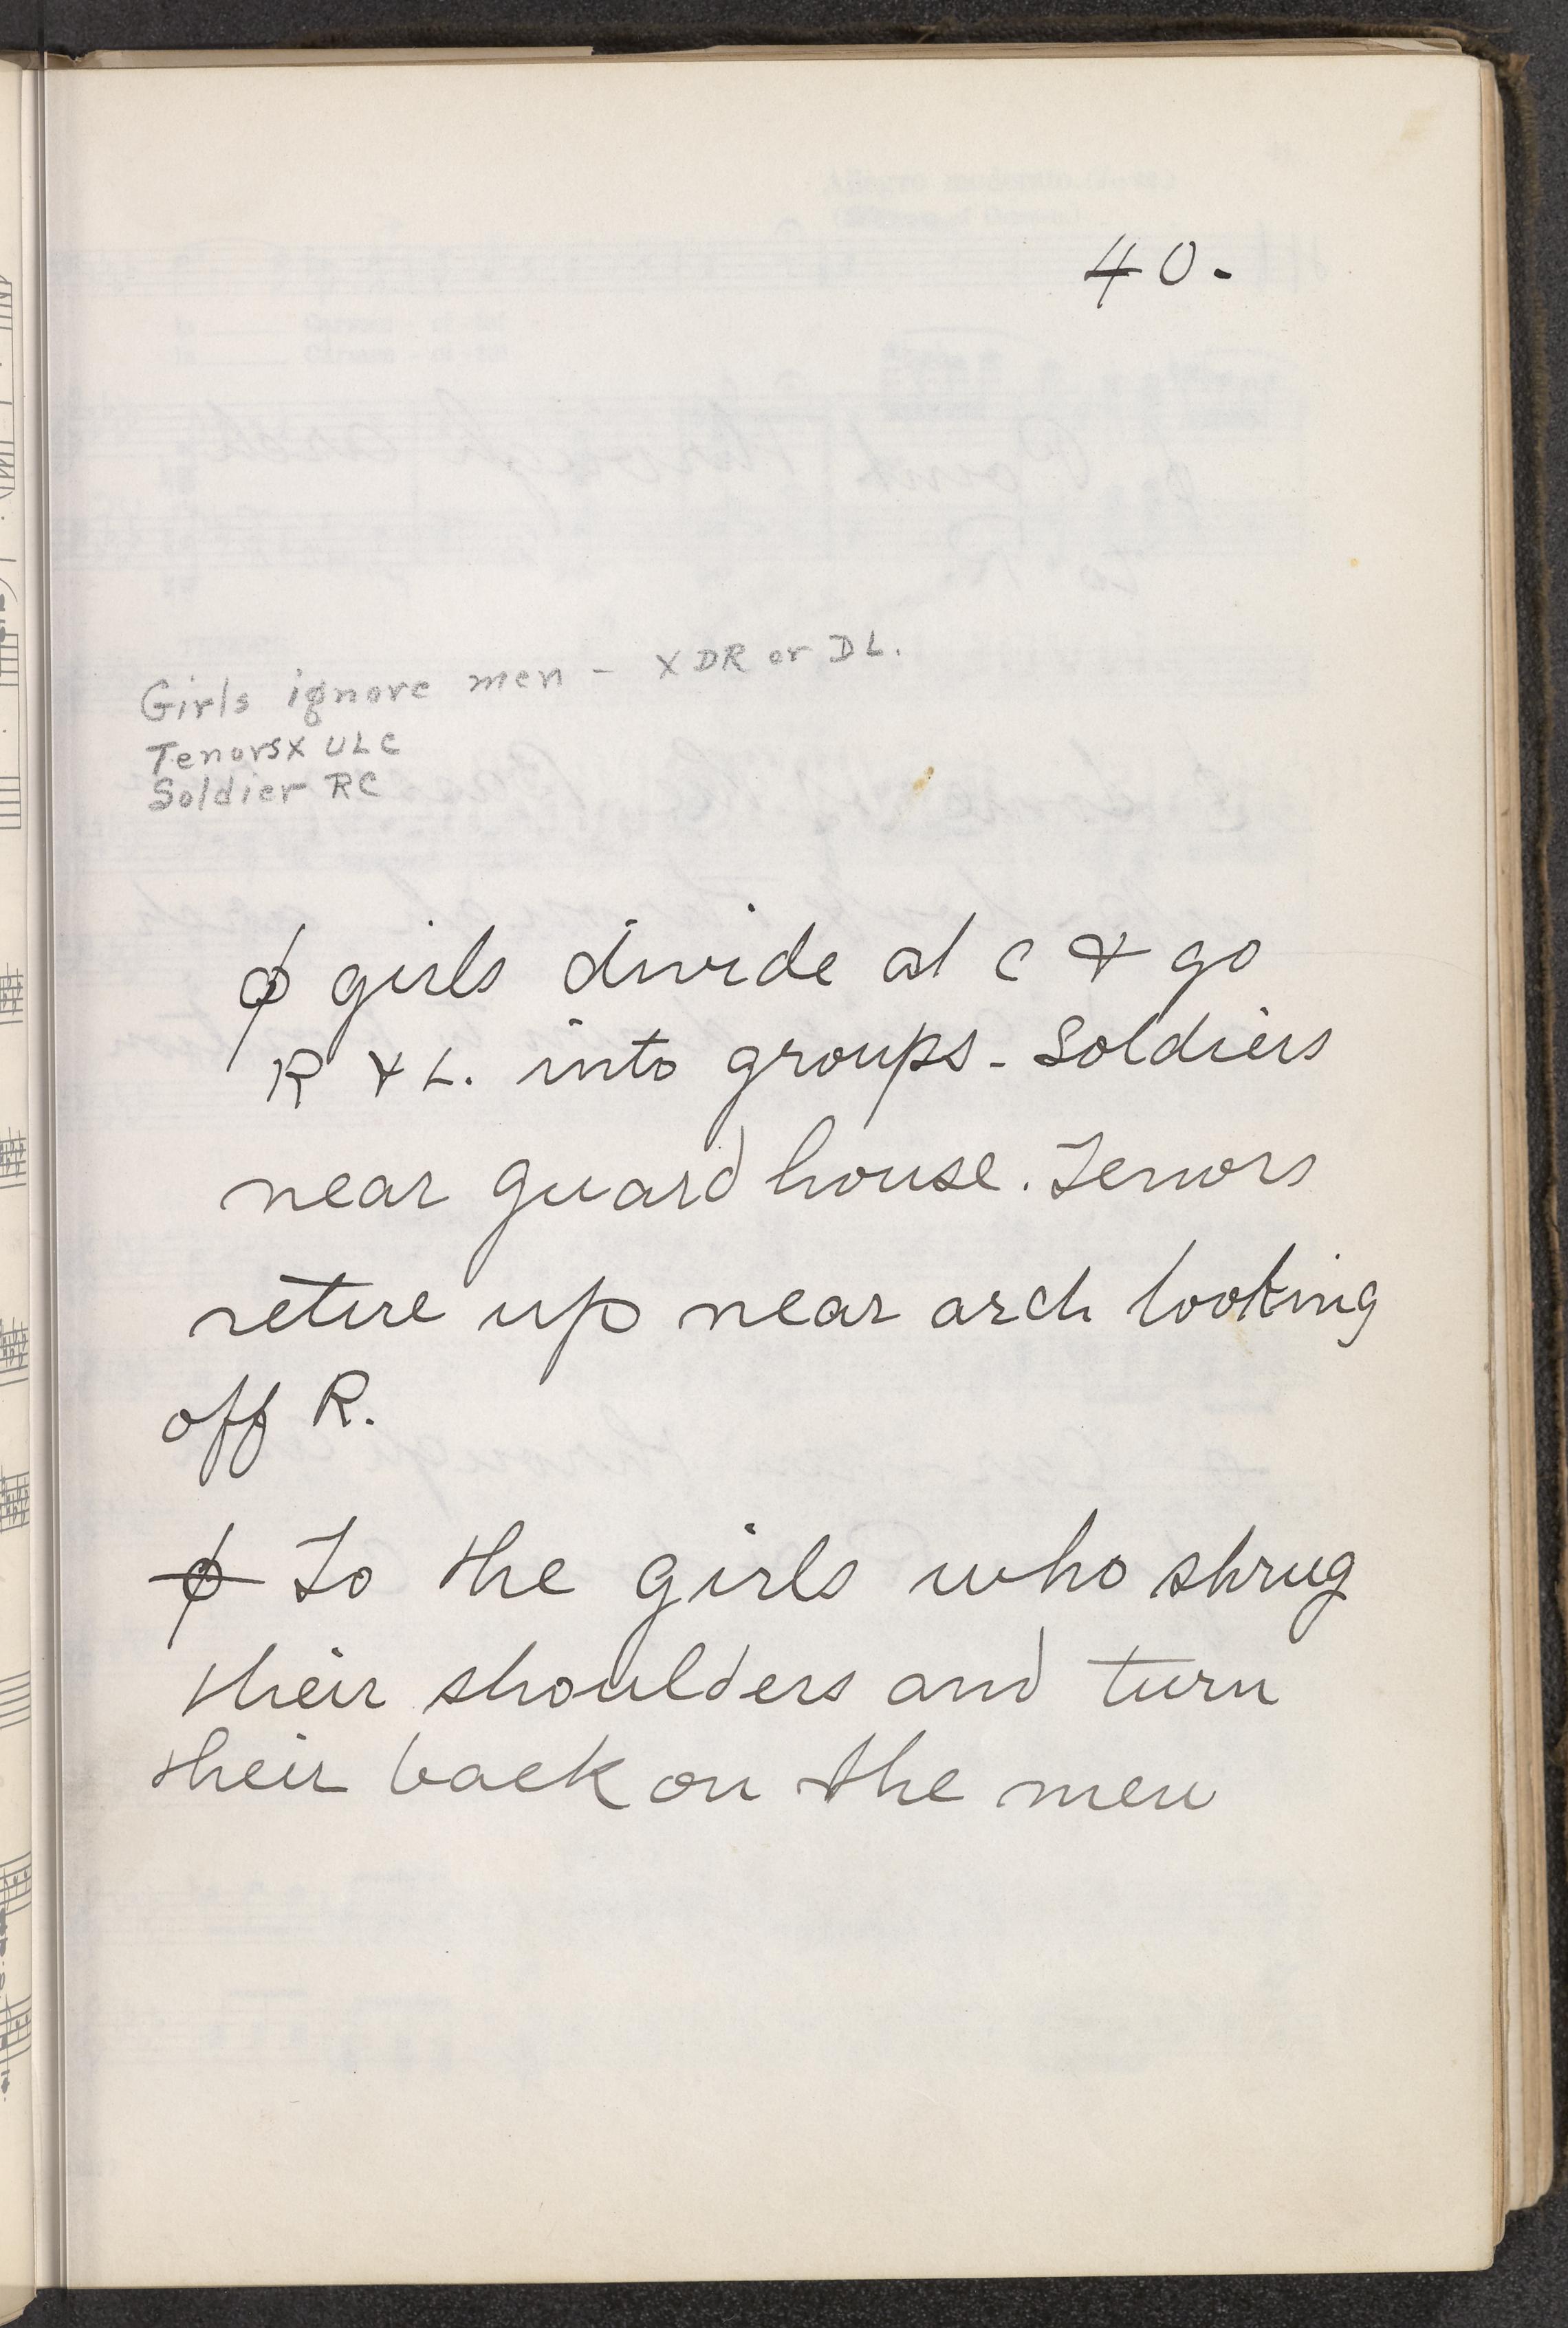 40.
Girls ignore men - X DR or DL.
Tenors X ULC
Soldier RC
ϕ girls divide at C & go
R & L. into groups - Soldiers
near guard house. Tenors
retire up near arch looking
off R.
ϕ To the girls who shrug
their shoulders and turn
their back on the men